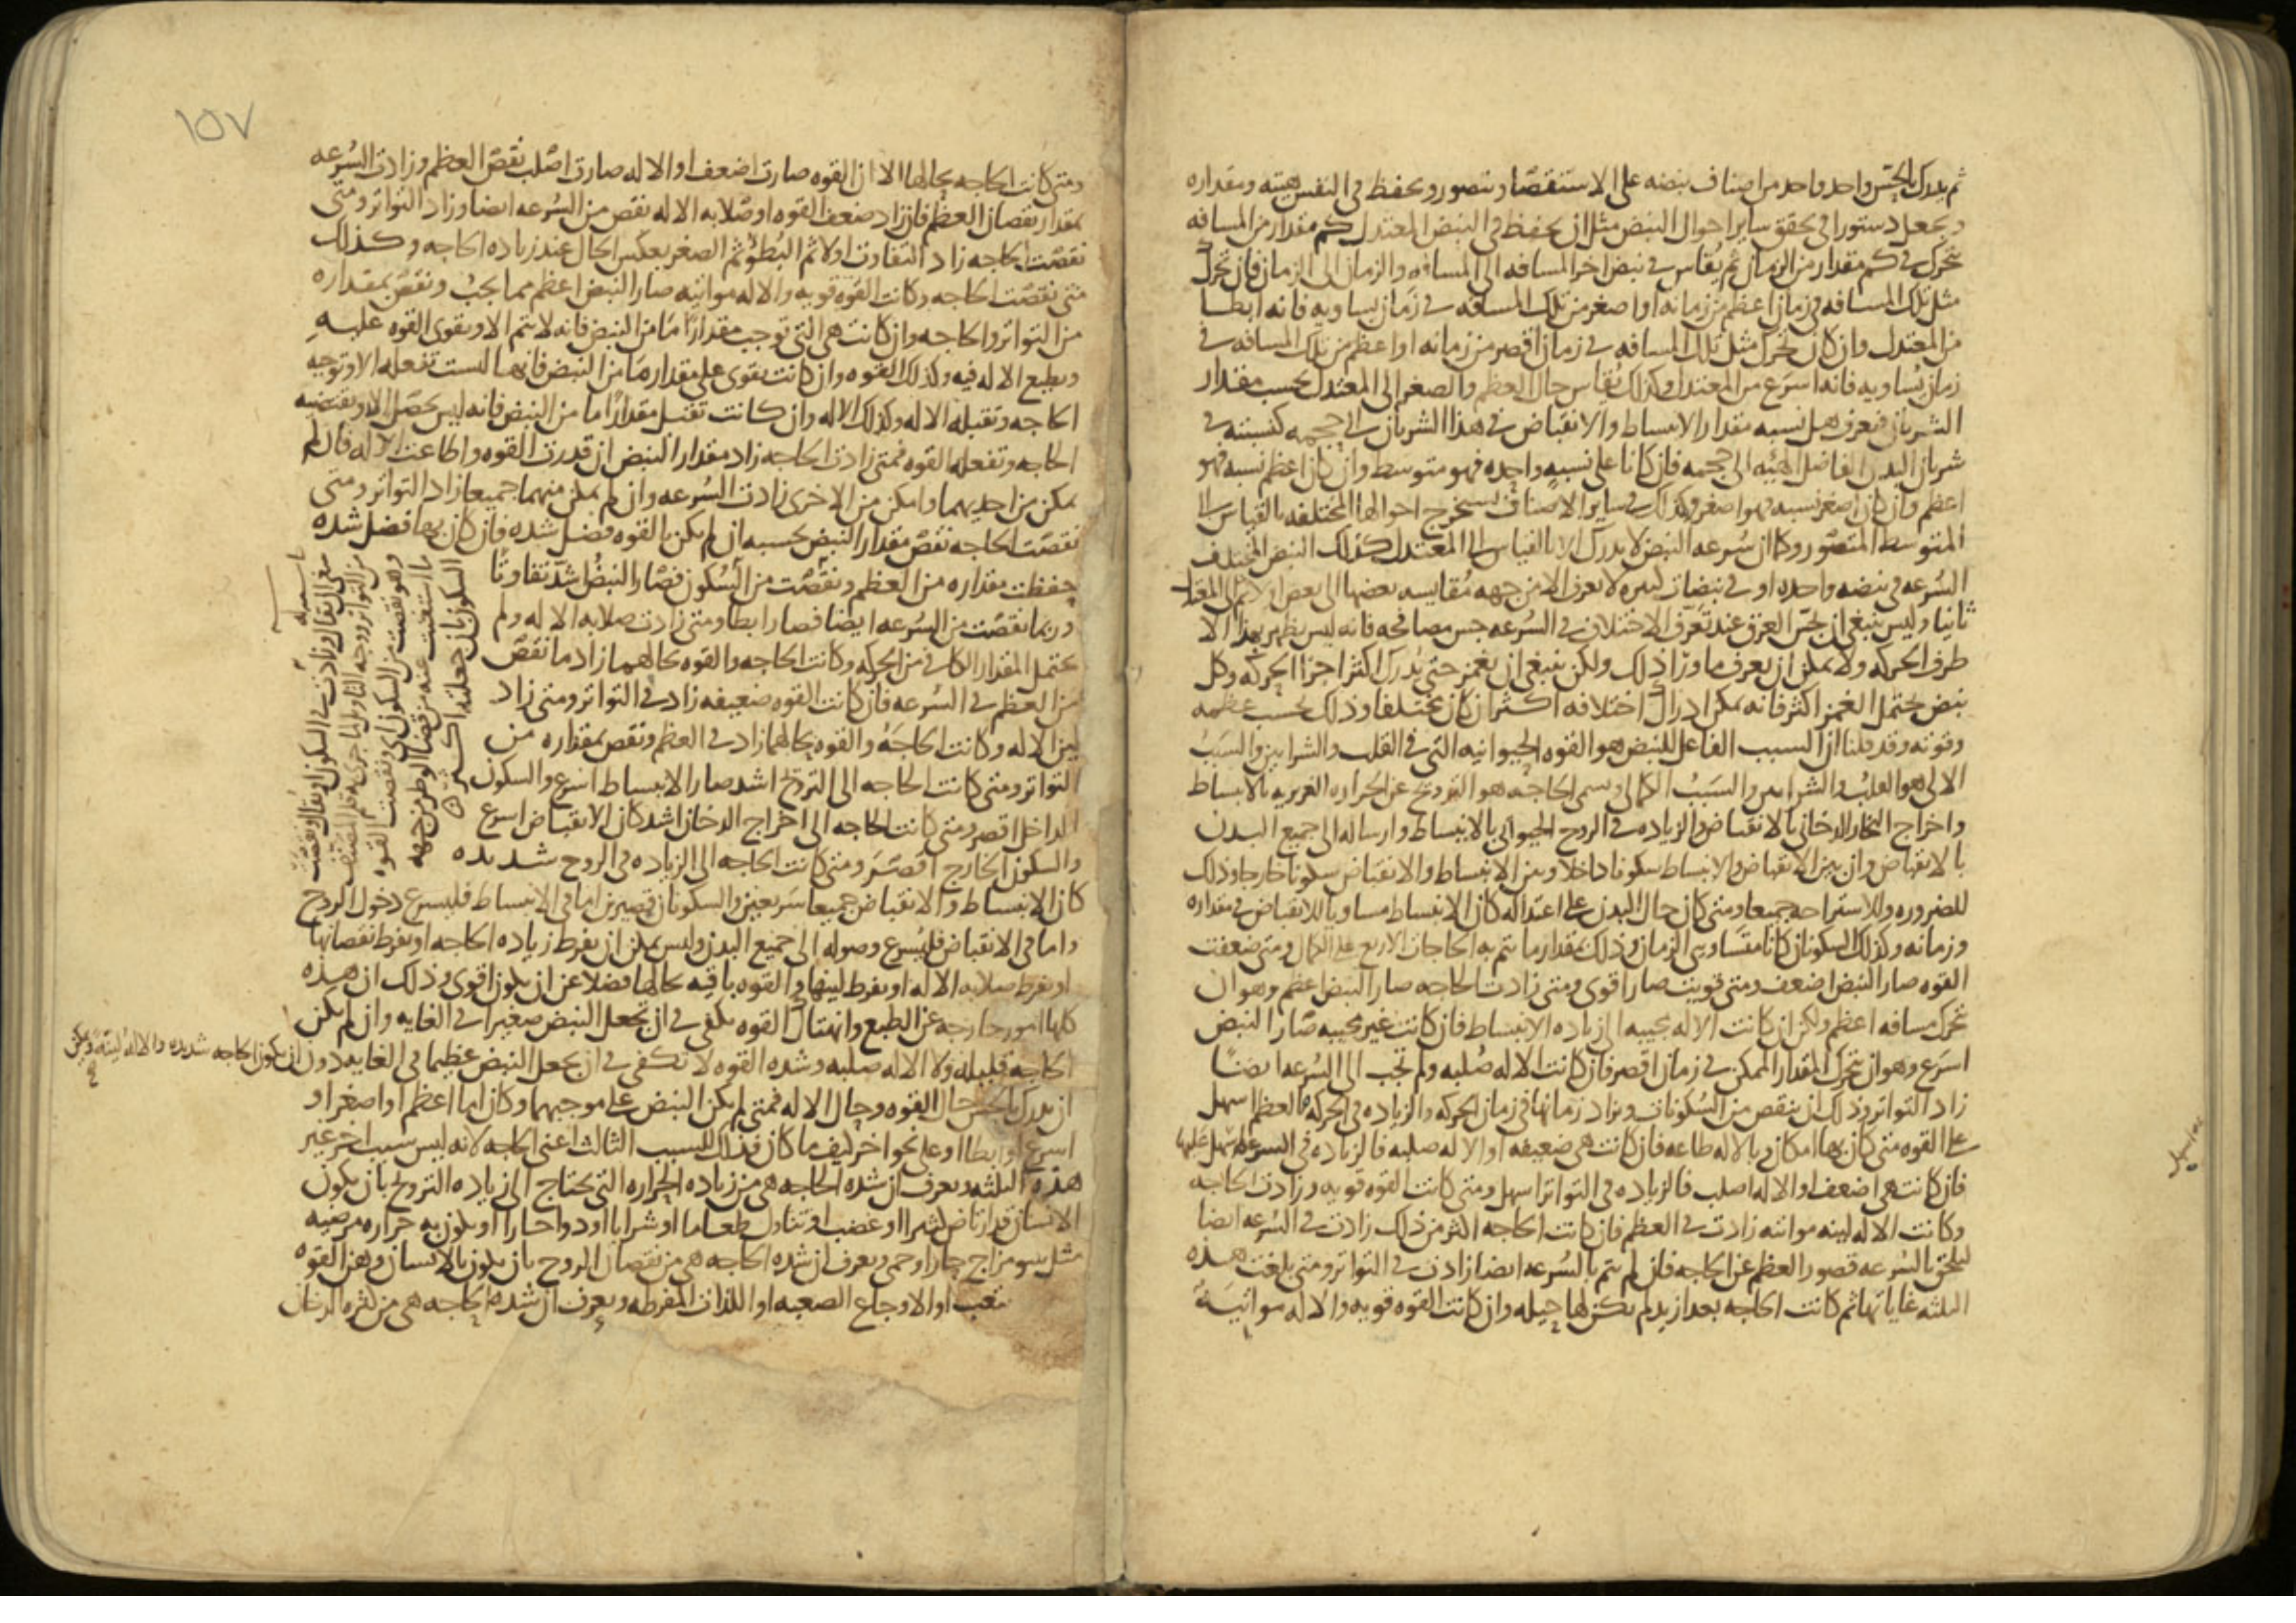 ثم يدرك بالجس واحد واحد من اصناف نبضه على الاستقصا ويتصور ويحفظ في النفس هيته ومقداره
ويجعل دستورا في تحقق ساير احوال النبض مثل ان يحفظ في النبض المعتدل كم مقدار من المسافه
يتحرك في كم مقدار من الزمان ثم يقاس في نبض اخر المسافه الى المسافه والزمان الى الزمان فان تحرك
مثل تلك المسافه في زمان اعظم من زمانه او اصغر من تلك المسافه في زمان يساويه فانه ابطا
من المعتدل وان كان يتحرك مثل تلك المسافه في زمان اقصر من زمانه او اعظم من تلك المسافه في
زمان يساويه فانه اسرع من المعتدل وكذلك يقاس حال العظم والصغر الى المعتدل بحسب مقدار
الشريان فيعرف هل نسبه مقدار الانبساط والانقباض في هذا الشريان الى حجمه كنسبته في
شريان البدن الفاضل الهيه الى حجمه فان كانا على نسبه واحده فهو متوسط وان كان اعظم نسبه فهو
اعظم وان كان اصغر نسبه فهو اصغر وكذلك في ساير الاصناف يستخرج احوالها المختلفه بالقياس الى
المتوسط المتصور وكما ان سرعه النبض لا يدرك الا بالقياس الى المعتدل كذلك النبض المختلف
السرعه في نبضه واحده او في نبضات كثيره لا يعرف الا من جهه مقايسه بعضها الى بعض اولا ثم الى المعتدل
ثانيا وليس ينبغي ان يجس العرق عند تعرف الاختلاف في السرعه جس مصافحه فانه ليس يظهر بهذا الا
طرف الحركه ولا يمكن ان يعرف ما ورا ذلك ولكن ينبغي ان يغمز حتى يدرك اكثر اجزا الحركه وكل
نبض يحتمل الغمز اكثر فانه يمكن ادراك اختلافه اكثر ان كان مختلفا وذلك بحسب عظمه
وقوته وقد قلنا ان السبب الفاعل للنبض هو القوه الحيوانيه التي في القلب والشرايين والسبب
الالي هو القلب والشرايين والسبب الكمالي وسمى الحاجه هو الترويح عن الحراره الغريزيه بالانبساط
واخراج البخار الدخاني بالانقباض والزياده في الروح الحيواني بالانبساط وارساله الى جميع البدن
بالانقباض وان بين الانقباض والانبساط سكونا داخلا وبين الانبساط والانقباض سكونا خارجا وذلك
للضروره وللاستراحه جميعا ومتى كان حال البدن على اعتداله كان الانبساط مساويا للانقباض في مقداره
وزمانه وكذلك السكونان كانا متساويي الزمان وذلك بمقدار ما يتم به الحاجات الاربع على الكمال ومتى ضعفت
القوه صار النبض اضعف ومتى قويت صار اقوى ومتى زادت الحاجه صار النبض اعظم وهو ان
يتحرك مسافه اعظم ولكن ان كانت الاله مجيبه الى زياده الانبساط فان كانت غير مجيبه صار النبض
اسرع وهو ان يتحرك المقدار الممكن في زمان اقصر فان كانت الاله صلبه ولم تجب الى السرعه ايضا
زاد التواتر وذلك ان ينقص من السكونات ويزاد زمانها في زمان الحركه والزياده في الحركه بالعظم اسهل
على القوه متى كان بها امكان وبالاله طاعه فان كانت هي ضعيفه او الاله صلبه فالزياده في السرعه اسهل عليها
فان كانت هي اضعف او الاله اصلب فالزياده في التواتر اسهل ومتى كانت القوه قويه وزادت الحاجه
وكانت الاله لينه مواتيه زادت في العظم فان كانت الحاجه اكثر من ذلك زادت في السرعه ايضا
ليلحق بالسرعه قصور العظم عن الحاجه فان لم يتم بالسرعه ايضا زادت في التواتر ومتى بلغت هذه
الثلثه غاياتها ثم كانت الحاجه بعد ازيد لم يكن لها حيله وان كانت القوه قويه والاله مواتيه
١٥٧
ومتى كانت الحاجه بحالها الا ان القوه صارت اضعف او الاله صارت اصلب نقص العظم وزادت السرعه
بمقدار نقصان العظم فان زاد ضعف القوه او صلابه الاله نقص من السرعه ايضا وزاد التواتر ومتى
نقصت الحاجه زاد التفاوت اولا ثم البطو ثم الصغر بعكس الحال عند زياده الحاجه وكذلك
متى نقصت الحاجه وكانت القوه قويه والاله مواتيه صار النبض اعظم مما يجب ونقص بمقداره
من التواتر والحاجه وان كانت هي التي توجب مقدارا ما من النبض فانه لا يتم الا وبقوى القوه عليه
ويطيع الاله فيه وكذلك القوه وان كانت تقوى على مقدار ما من النبض فانها ليست تفعله الا وتوجبه
الحاجه وتقبله الاله وكذلك الاله وان كانت تقبل مقدارا ما من النبض فانه ليس يحصل الا وتقتضيه
الحاجه وتفعله القوه فمتى زادت الحاجه زاد مقدار النبض ان قدرت القوه واطاعت الاله فان لم
يمكن من احديهما وامكن من الاخرى زادت السرعه وان لم يمكن منهما جميعا زاد التواتر ومتى
نقصت الحاجه نقص مقدار النبض بحسبه ان لم يكن بالقوه فضل شده فان كان بها فضل شده
حفظت مقداره من العظم ونقصت من السكون فصار النبض اشد تفاوتا
وربما نقصت من السرعه ايضا فصار ابطا ومتى زادت صلابه الاله ولم
يحتمل المقدار الكافي من الحركه وكانت الحاجه والقوه بحالهما زاد ما نقص
من العظم في السرعه فان كانت القوه ضعيفه زاد في التواتر ومتى زاد
لين الاله وكانت الحاجه والقوه بحالهما زاد في العظم ونقص بمقداره من
التواتر ومتى كانت الحاجه الى الترويح اشد صار الانبساط اسرع والسكون
الداخل اقصر ومتى كانت الحاجه الى اخراج الدخان اشد كان الانقباض اسرع
والسكون الخارج اقصر ومتى كانت الحاجه الى الزياده في الروح شديده
كان الانبساط والانقباض جميعا سريعين والسكونان قصيرين اما في الانبساط فليسرع دخول الروح
واما في الانقباض فليسرع وصوله الى جميع البدن وليس يمكن ان يفرط زياده الحاجه او يفرط نقصانها
او يفرط صلابه الاله او يفرط لينها والقوه باقيه بحالها فضلا عن ان يكون اقوى وذلك ان هذه
كلها امور خارجه عن الطبع القوه يكفي في ان تجعل النبض صغيرا في الغايه وان لم يكن
الحاجه قليله ولا الاله صلبه وشده القوه لا تكفي في ان يجعل النبض عظيما في الغايه دون ان يكون الحاجه شديده والاله لينه
ان يدرك بالجس حال القوه وحال الاله فمتى لم يكن النبض على موجبهما وكان اما اعظم او اصغر او
اسرع او ابطا او على نحو اخر كيف ما كان فذلك للسبب الثالث اعني الحاجه لانه ليس سبب اخر غير
هذه الثلثه ويعرف ان شده الحاجه هي من زياده الحراره التي يحتاج الى زياده الترويح بان يكون
الانسان قد ارتاض كثيرا او غضب او تناول طعاما او شرابا او دوا حارا او يكون به حراره مرضيه
مثل سو مزاج حار او حمى ويعرف ان شده الحاجه هي من نقصان الروح بان يكون بالانسان وهن القوه
تعب او الاوجاع الصعبه او اللذات المفرطه ويعرف ان شده الحاجه هي من كثره الدخان